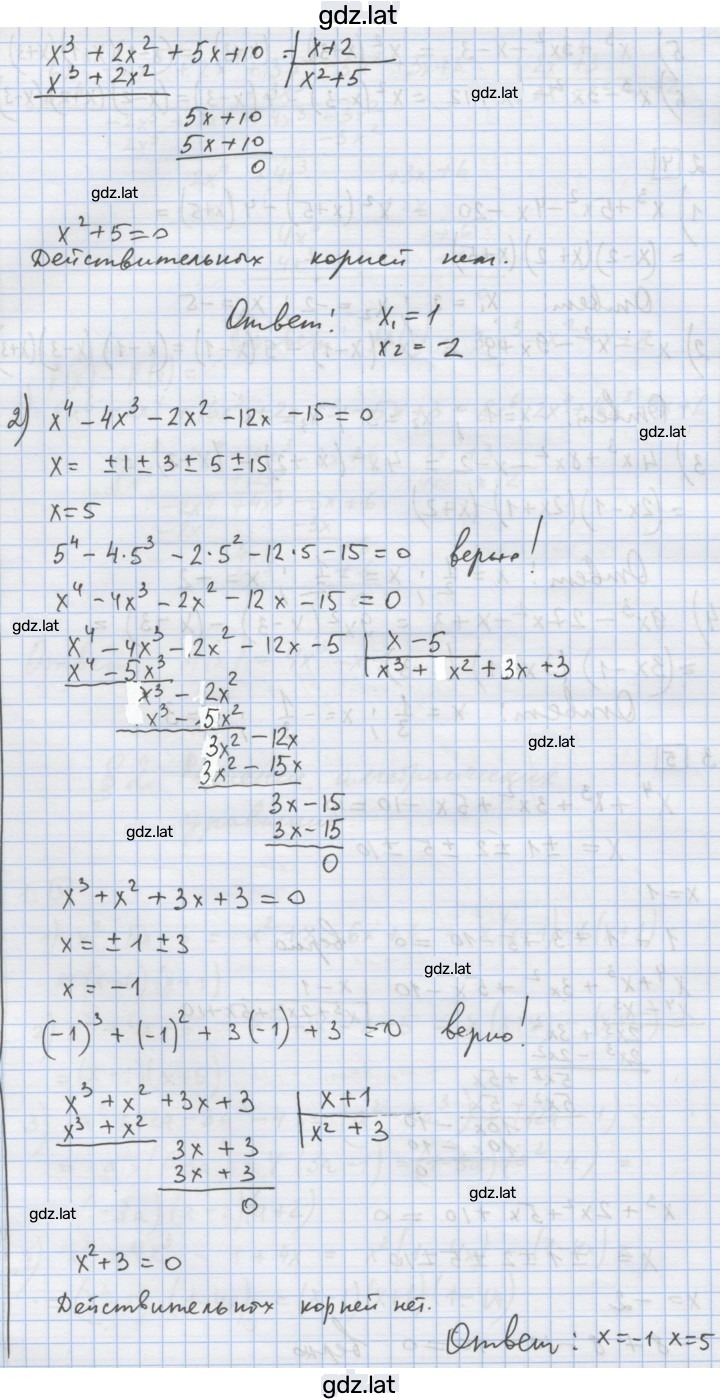 gdz.lat
x³ + 2x² + 5x+10 | x+2
x³ + 2x² | x²+5
gdz.lat
5x+10
5x+10
0
gdz.lat
x²+5=0
Действительных корней нет.
Ответ: x₁ = 1
x₂ = -2
2) x⁴ - 4x³ - 2x² - 12x - 15 = 0
gdz.lat
x = ±1 ± 3 ± 5 ± 15
x=5
5⁴ - 4·5³ - 2·5² - 12·5 - 15 = 0 верно!
x⁴ - 4x³ - 2x² - 12x - 15 = 0
gdz.lat
x⁴ - 4x³ - 2x² - 12x - 5 | x - 5
x⁴ - 5x³ | x³ + x² + 3x + 3
x³ - 2x²
x³ - 5x²
3x² - 12x
gdz.lat
3x² - 15x
3x - 15
3x - 15
gdz.lat
0
x³ + x² + 3x + 3 = 0
x = ± 1 ± 3
gdz.lat
x = -1
(-1)³ + (-1)² + 3(-1) + 3 = 0 верно!
x³ + x² + 3x + 3 | x+1
x³ + x² | x² + 3
3x + 3
3x + 3
gdz.lat
0
gdz.lat
x²+3 = 0
Действительных корней нет.
Ответ: x=-1 x=5
gdz.lat